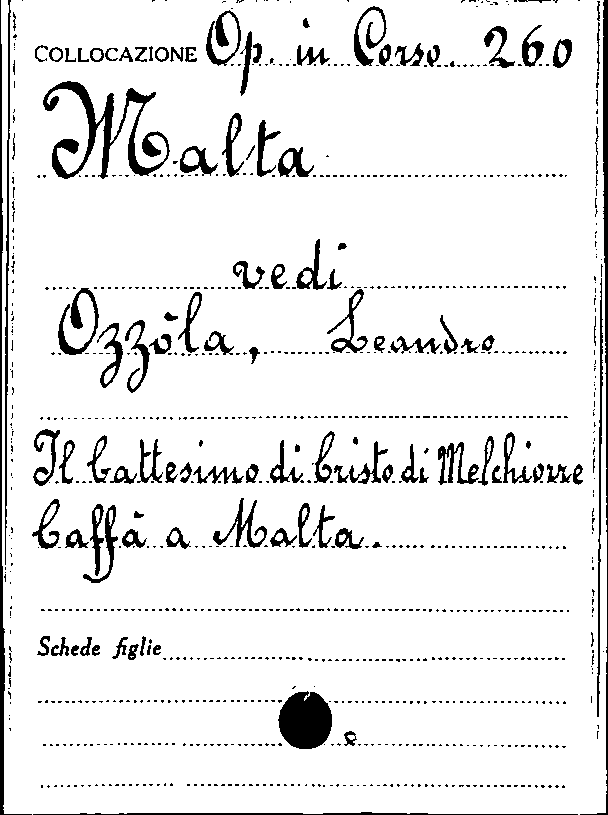 COLLOCAZIONE Op. in Corso. 260
Malta
vedi
Ozzòla, Leandro
Il battesimo di Cristo di Melchiorre
Caffà a Malta.
Schede figlie